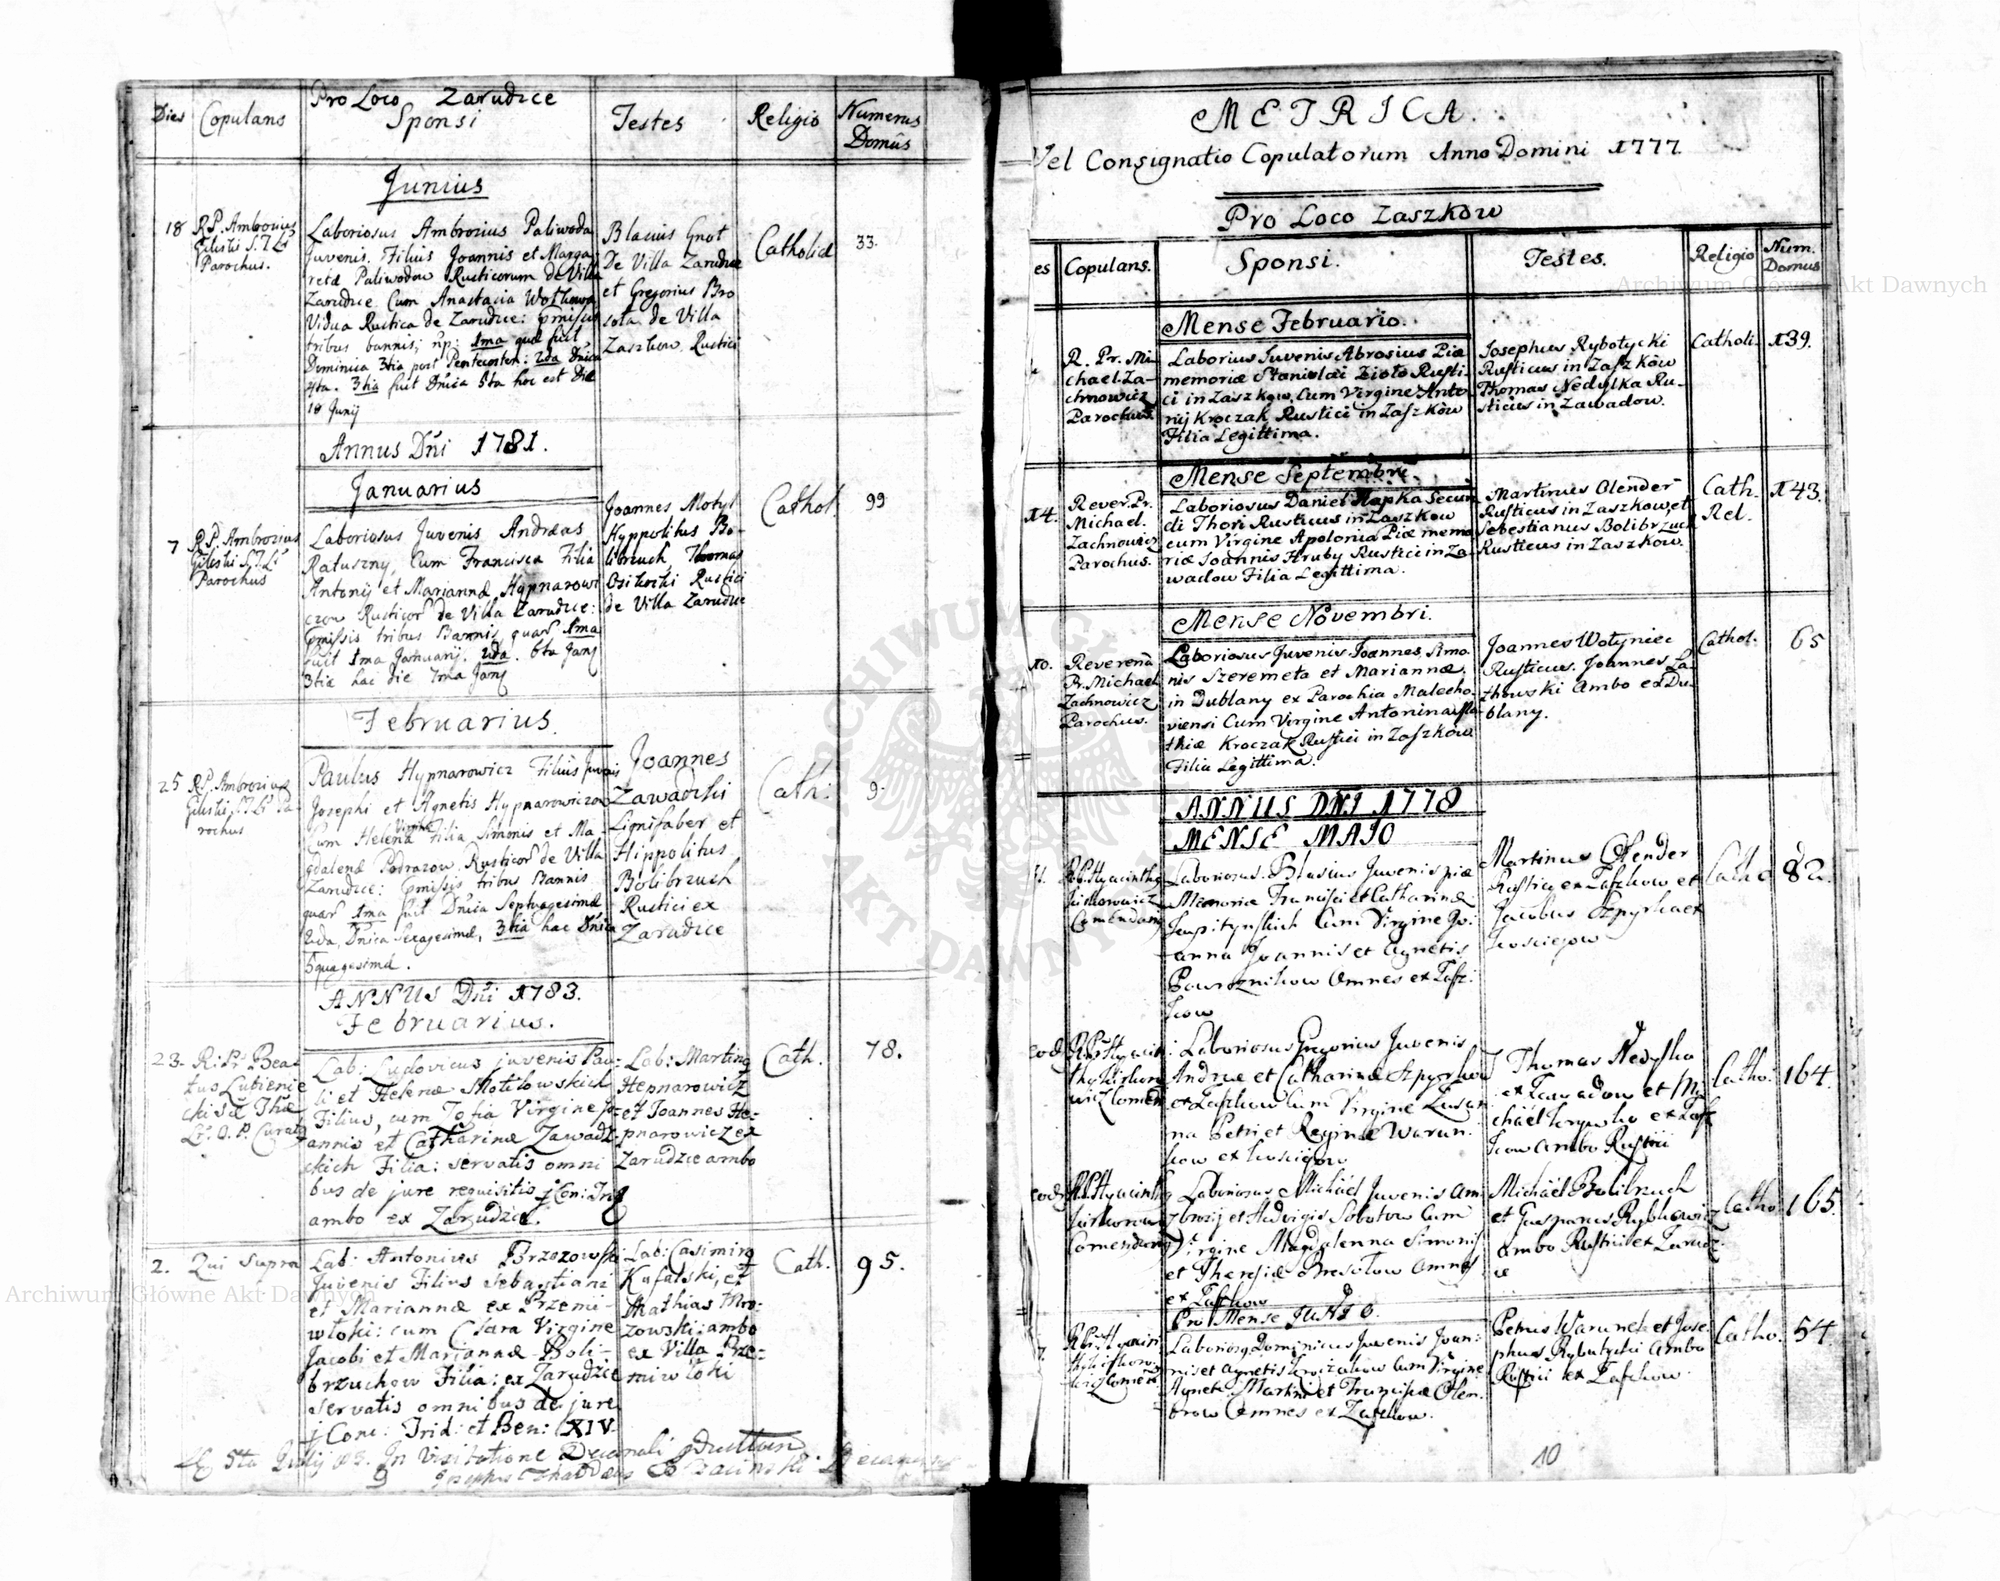 Pro Loco Zarudzce
Dies Copulans Sponsi Testes Religio Numerus Domûs
Junius
18 RP. Ambrosius
Parochus.
Laboriosus Ambrosius Paliwoda
Juvenis. Filius Joannis et Marga
retæ Paliwodow Rusticorum de Villa
Zarudzce Cum Anastasia
Vidua Rustica de Zarudzce: pmissis
tribus bannis, np: 1ma quæ fuit
Dominica 3tia post Pentecosten: 2da Dñica
4ta. 3tia fuit Dñica 5ta hoc est Die
18 Junij
Blasius Gnot
De Villa Zarudzce
et Gregorius Bro
sota de Villa
Zaszkow. Rustici
Catholicæ
33.
Annus Dñi 1781.
Januarius
7 RP. Ambrosius
Parochus
Laboriosus Juvenis Andræas
Ratuszny, Cum Francisca Filia
Antonij et Mariannæ Hypnarowi
czow Rusticor de Villa Zarudzce:
pmissis tribus Bannis, quar 1ma
fuit 1ma Januarij. 2da. 6ta Janj
3tia hac die 7ma Janj
Joannes Motyl
Hyppolitus Bo-
librzuch Thomas
Rustici
de Villa Zarudzce
Cathol
99
Februarius.
25 RP. Ambrosius
Pa-
rochus
Paulus Hypnarowicz Filius Juvenis
Josephi et Agnetis Hypnarowiczow
Cum Helena Virgine Filia Simonis et Ma-
gdalenæ Podrazow Rusticor de Villa
Zarudzce: pmissis tribus Bannis
quar 1ma fuit Dñica Septuagesimæ
2da, Dñica Sexagesimæ, 3tia hac Dñica
5quagesimæ.
Joannes
Zawadzki
Lignifaber et
Hippolitus
Bolibrzuch
Rustici ex
Zarudzce
Cath:
9.
ANNUS Dñi 1783.
Februarius.
23. R: Pr Bea
tus Lubienie
cki
O. P. Curatg
Lab: Ludovicus juvenis Pau-
li et Helenæ Motilowskich
Filius, cum Zofia Virgine Jo-
annis et Catharinæ Zawadz-
kich Filia: servatis omni
bus de jure requisitis
ambo ex Zarudzce.
Lab: Marting
Hepnarowicz
et Joannes He-
pnarowicz ex
Zarudzie ambo
Cath.
78.
2. Qui supra
Lab: Antonius Brzozowski
Juvenis Filius Sebastiani
et Mariannæ ex Przemi-
wloki: cum Clara Virgine
Jacobi et Mariannæ Boli-
brzuchow Filia: ex Zarudzie
servatis omnibus de jure
j Conc: Trid: et Ben: XIV.
Lab: Casimirg
Kufalski, et
Mathias Bro-
zowski: ambo
ex Villa Prze-
miwloki
Cath.
95.
5ta 83. In Visitatione Decanali
9
METRICA.
Vel Consignatio Copulatorum Anno Domini 1777
Pro Loco Zaszkow
es Copulans. Sponsi. Testes. Religio Num. Domus
Mense Februario.
R. Pr. Mi-
chael Za-
chnowicz
Parochus.
Laborius Juvenis Abrosius Piæ
memoriæ Stanislai Zioło Rusti-
ci in Zaszkow, Cum Virgine Anto
nij Kroczak Rustici in Zaszkow
Filia Legittima.
Josephus Rybotycki
Rusticus in Zaszkow
Thomas Nedylka Ru-
sticus in Zawadow.
Catholi.
139.
Mense Septembri.
14.
Rever. Pr.
Michael
Zachnowicz
Parochus.
Laboriosus Daniel Hapka Secun
di Thori Rusticus in Zaszkow
cum Virgine Apolonia Piæ memo
riæ Joannis Hruby Rustici in Za
wadow Filia Legittima.
Martinus Olender
Rusticus in Zaszkow, et
Sebestianus Bolibrzuch
Rusticus in Zaszkow.
Cath.
Rel.
143.
Mense Novembri.
10.
Reverend
Pr. Michael
Zachnowicz
Parochus.
Laboriosus Juvenis Joannes, Simo
nis Szeremeta et Mariannæ,
in Dublany ex Parochia Malecho-
viensi Cum Virgine Antonina Ma-
thiæ Kroczak Rustici in Zaszkow
Filia Legittima.
Joannes Wotyniec
Rusticus. Joannes La-
tkowski Ambo ex Du-
blany.
Cathol.
65
ANNUS DNI 1778
MENSE MAJO
RP Hyacinthg
Comendarg
Laboriosus Blasius Juvenis piæ
Memoriæ Francisci et Catharinæ
Cum Virgine Jo-
anna Joannis et Agnetis
Powroznikow Omnes ex Zasz-
kow
Martinus Olender
Rusticg ex Zaszkow et
Jacobus Szpyrka ex
Catho
82.
eod.
Laboriosus Gregorius Juvenis
Andreæ et Catharinæ Szpyrkow
ex Zaszkow Cum Virgine Zusan
na Petri et Reginæ Warun
kow ex
Thomas Nedylka
ex Zawadow et Mi
chael ex Zasz
kow Ambo Rustici
Catho.
164.
eod.
RP Hyacinthg
Comendarg
Laboriosus Michael Juvenis Am
brozij et Hedvigis Sobotow Cum
Virgine Magdalenna Simonis
et Theresiæ Omnes
ex Zaszkow
Michael Bolibrzuch
et Gasparus
ambo Rustici ex Zarudz
ce
Catho
165.
Pro Mense JUNIO.
7.
Laboriosg Dominicus Juvenis Joan-
nis et Agnetis Cum Virgine
Agnete Martini et Franciscæ Olen-
drow Omnes ex Zaszkow.
Petrus Warunek et Jose-
phus Rybotycki Ambo
Rustici ex Zaszkow.
Catho.
54
10
Archiwum Główne Akt Dawnych
Archiwum Główne Akt Dawnych
ARCHIWUM GŁÓWNE AKT DAWNYCH